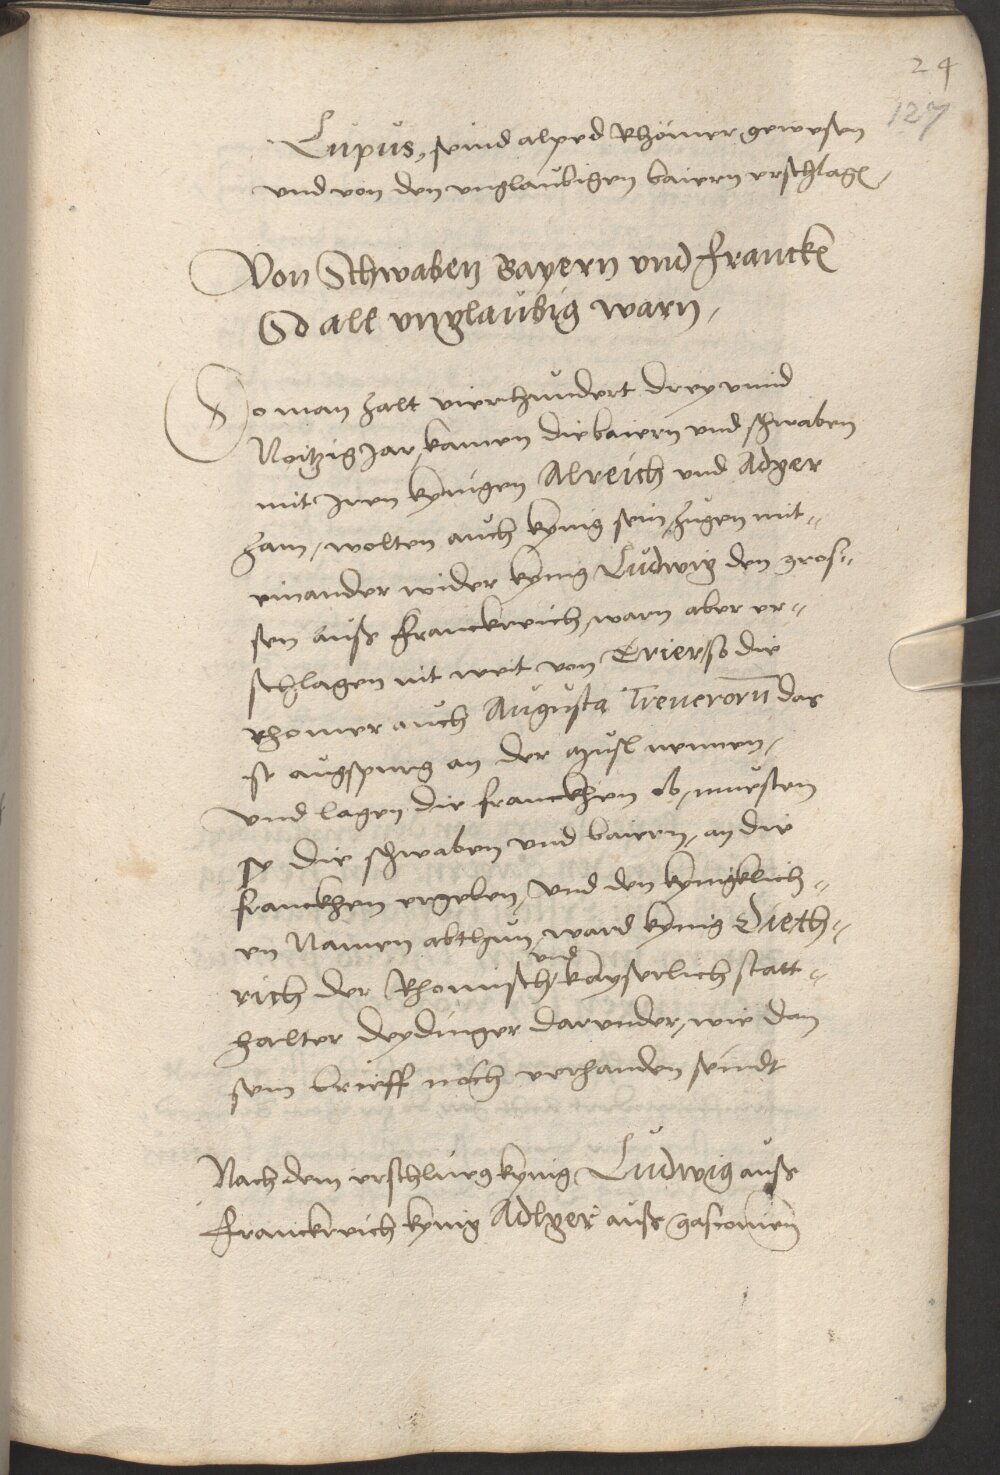 24
127
Lupus, seind alped Rhömer gewesen
vnd von den vnglaubigen baiern erschlagen
Von Schwaben Bayern vnd Francken
So all vnglaubig warn,
So man zalt vierhundert drey vnnd
Neitzig Jar, kamen die baiern vnd schwaben
mit Jren kynigen Alreich vnd Adger
zam, wolten auch kynig sein, zugen mit-
einander wider kynig Ludwig den gros-
sen außs Franckreich, warn aber er-
schlagen nit weit von Trier, so die
Rhomer auch Augusta Treuerorū das
ist augspurg an der Musl nennen,
Vnd lagen die franckhen ob, muesten
sy die schwaben vnd baiern, an die
franckhen ergeben, Vnd den kyniklich-
en Namen abthun, ward kynig Dieth-
rich der Rhomisch vnd kayserlich statt-
halter deydinger darunder, wie dan
sein brieff noch verhanden seindt
Nach dem erschlueg kynig Ludwig außs
Franckreich kynig Adlger außs gasconien